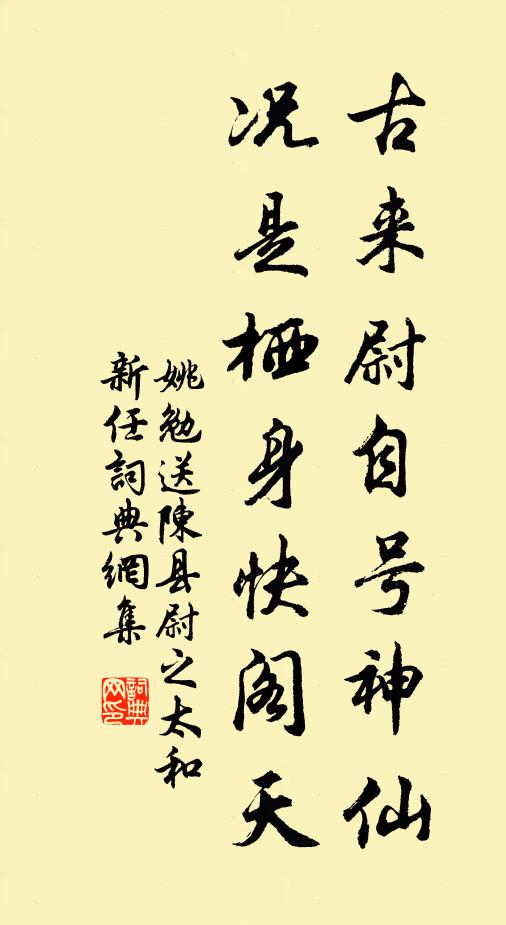 古来尉自号神仙
况是栖身快阁天
姚勉送陳县尉之太和
新任詞典網集
詞典网印